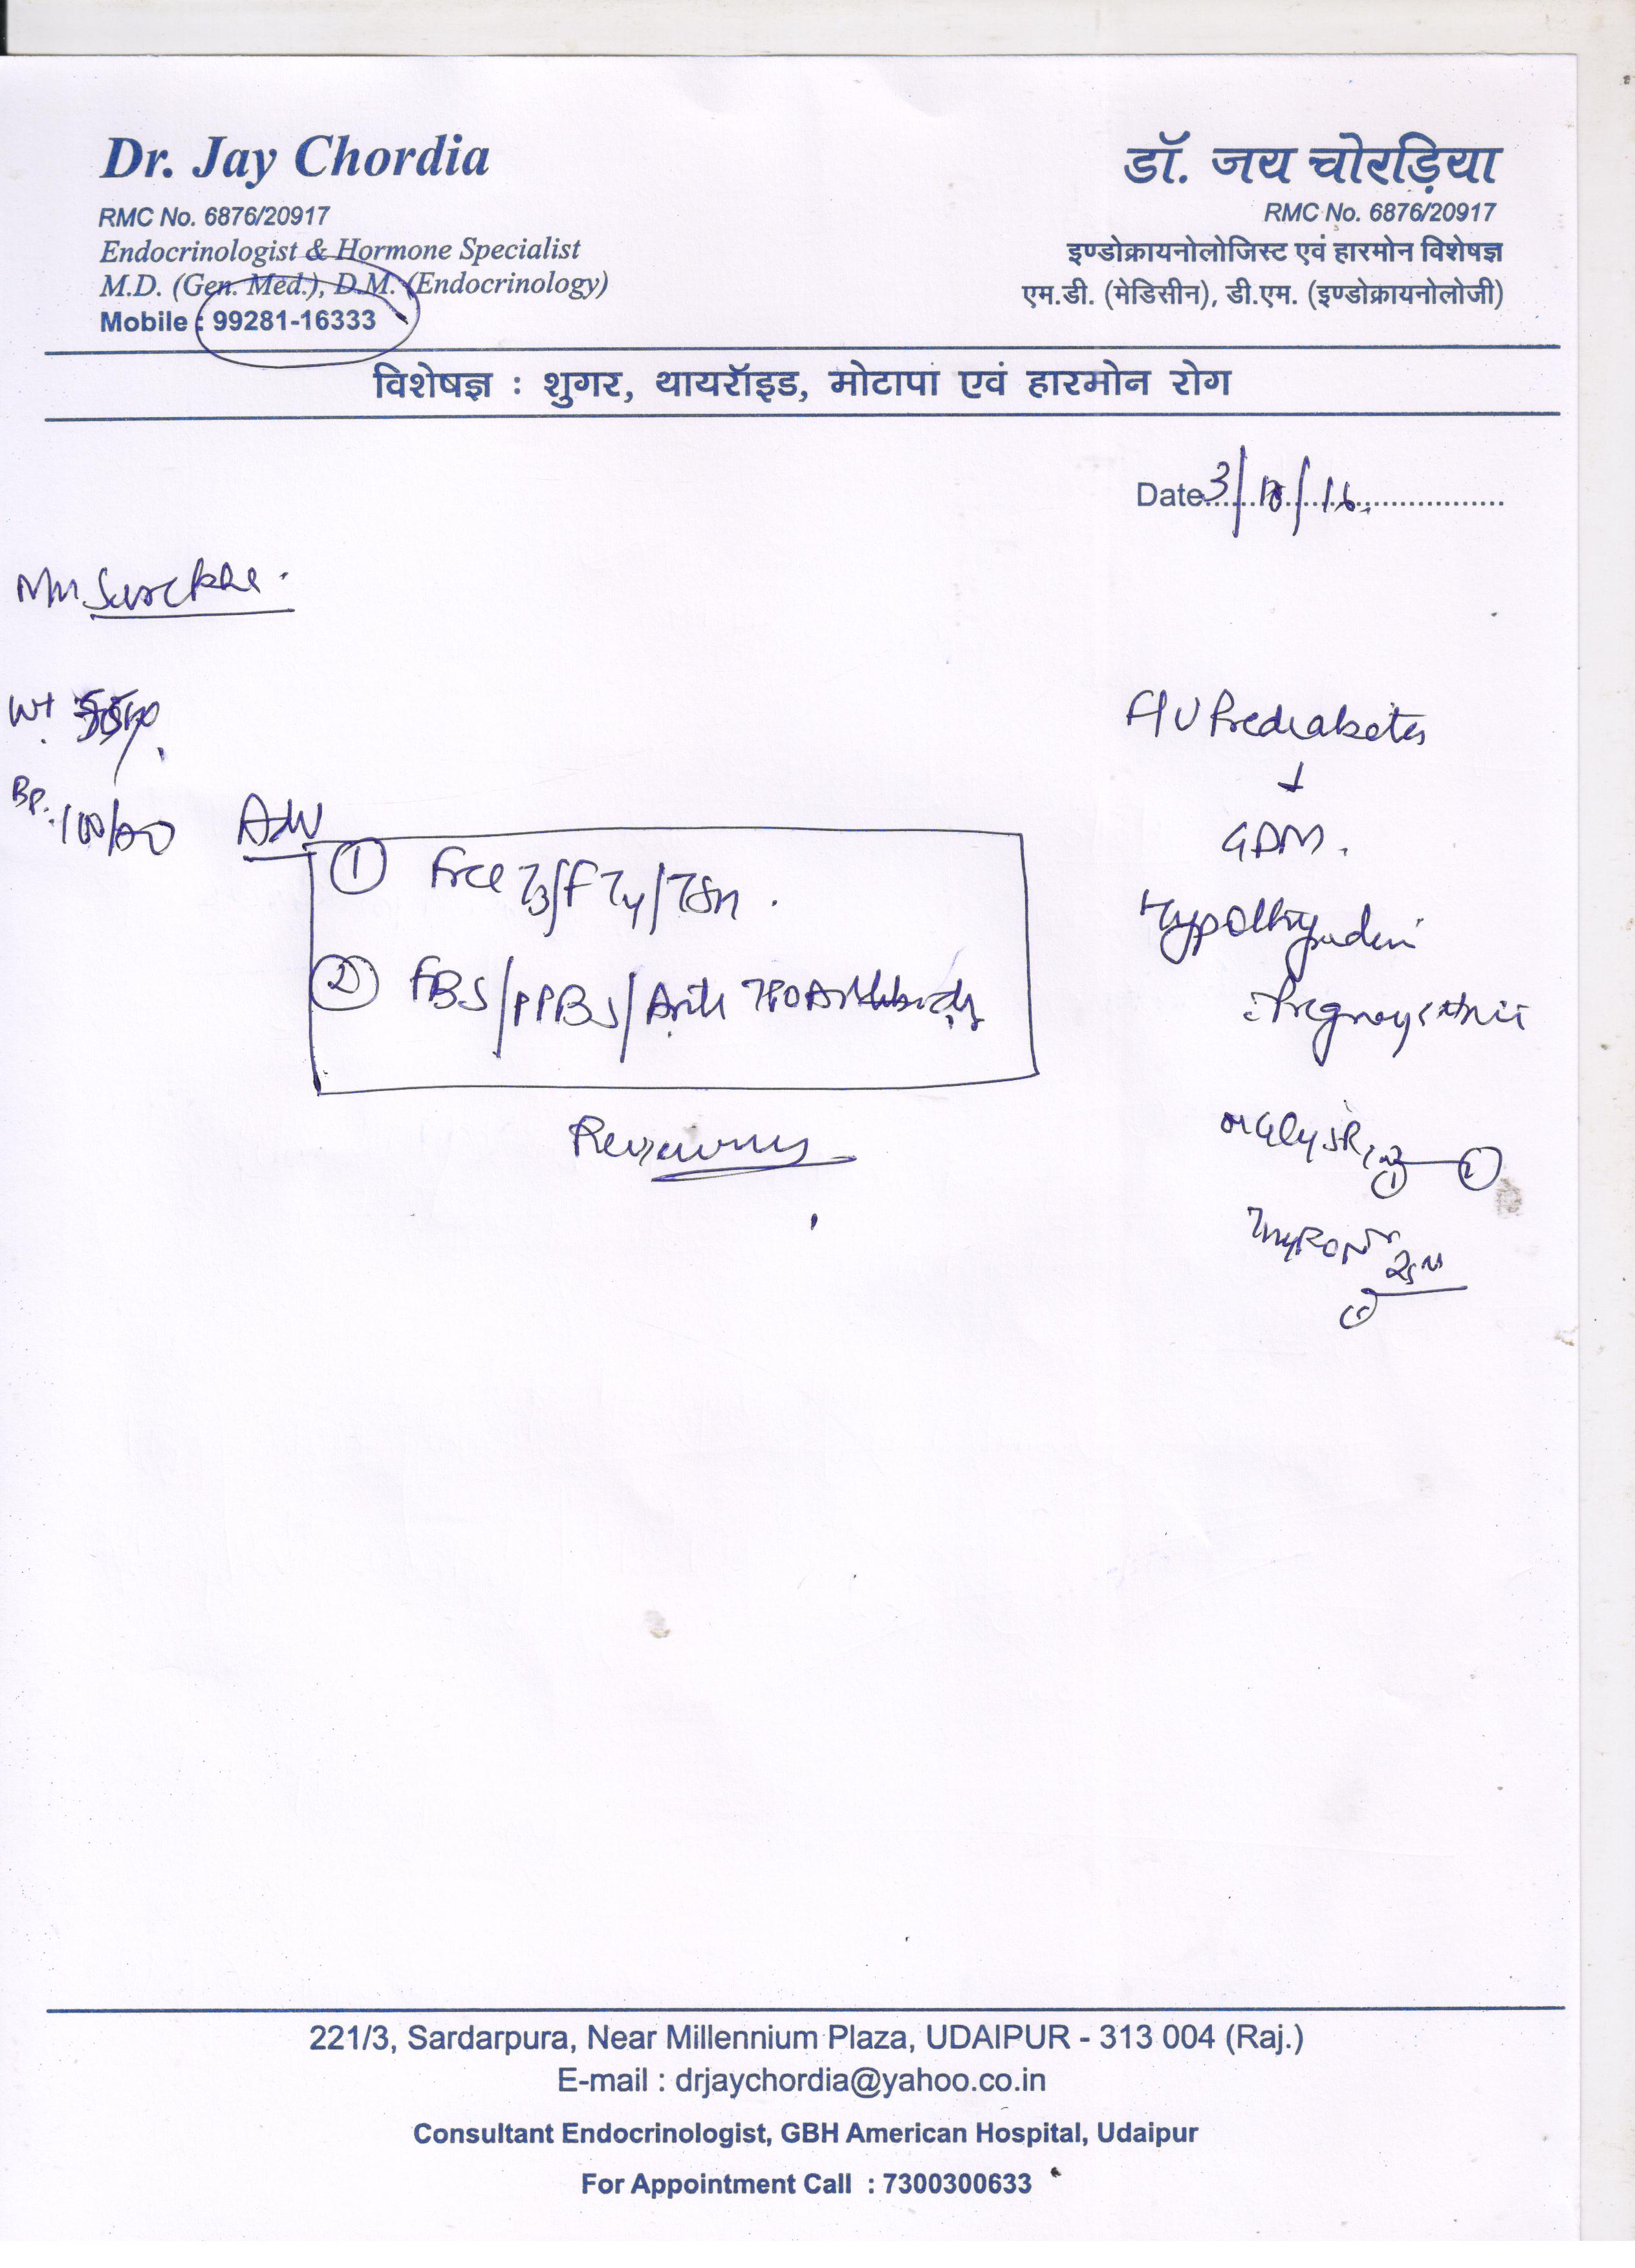 Dr. Jay Chordia
RMC No. 6876/20917
Endocrinologist & Hormone Specialist
M.D. (Gen. Med.), D.M. (Endocrinology)
Mobile : 99281-16333
डॉ. जय चोरड़िया
RMC No. 6876/20917
इण्डोक्रायनोलोजिस्ट एवं हारमोन विशेषज्ञ
एम.डी. (मेडिसीन), डी.एम. (इण्डोक्रायनोलोजी)
विशेषज्ञ : शुगर, थायरॉइड, मोटापा एवं हारमोन रोग
Date 3/ /16
Wt
BP. 100/
F/U Prediabetes
GDM.
Adv
① Free T3/FT4/TSH.
② FBS/PPBS/Anti TPO Antibody
221/3, Sardarpura, Near Millennium Plaza, UDAIPUR - 313 004 (Raj.)
E-mail : drjaychordia@yahoo.co.in
Consultant Endocrinologist, GBH American Hospital, Udaipur
For Appointment Call : 7300300633